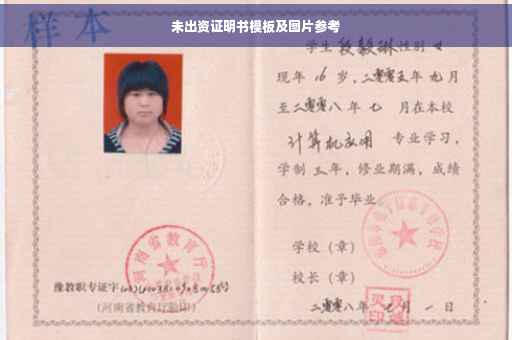 未出资证明书模板及图片参考
样本
学生段毅琳性别女
现年16岁，二零零五年九月
至二零零八年七月在本校
计算机应用 专业学习，
学制三年，修业期满，成绩
合格，准予毕业。
学校（章）
校长（章）
二零零八年七月一日
河南省教育厅
豫教职专证字
（河南省教育厅验印）